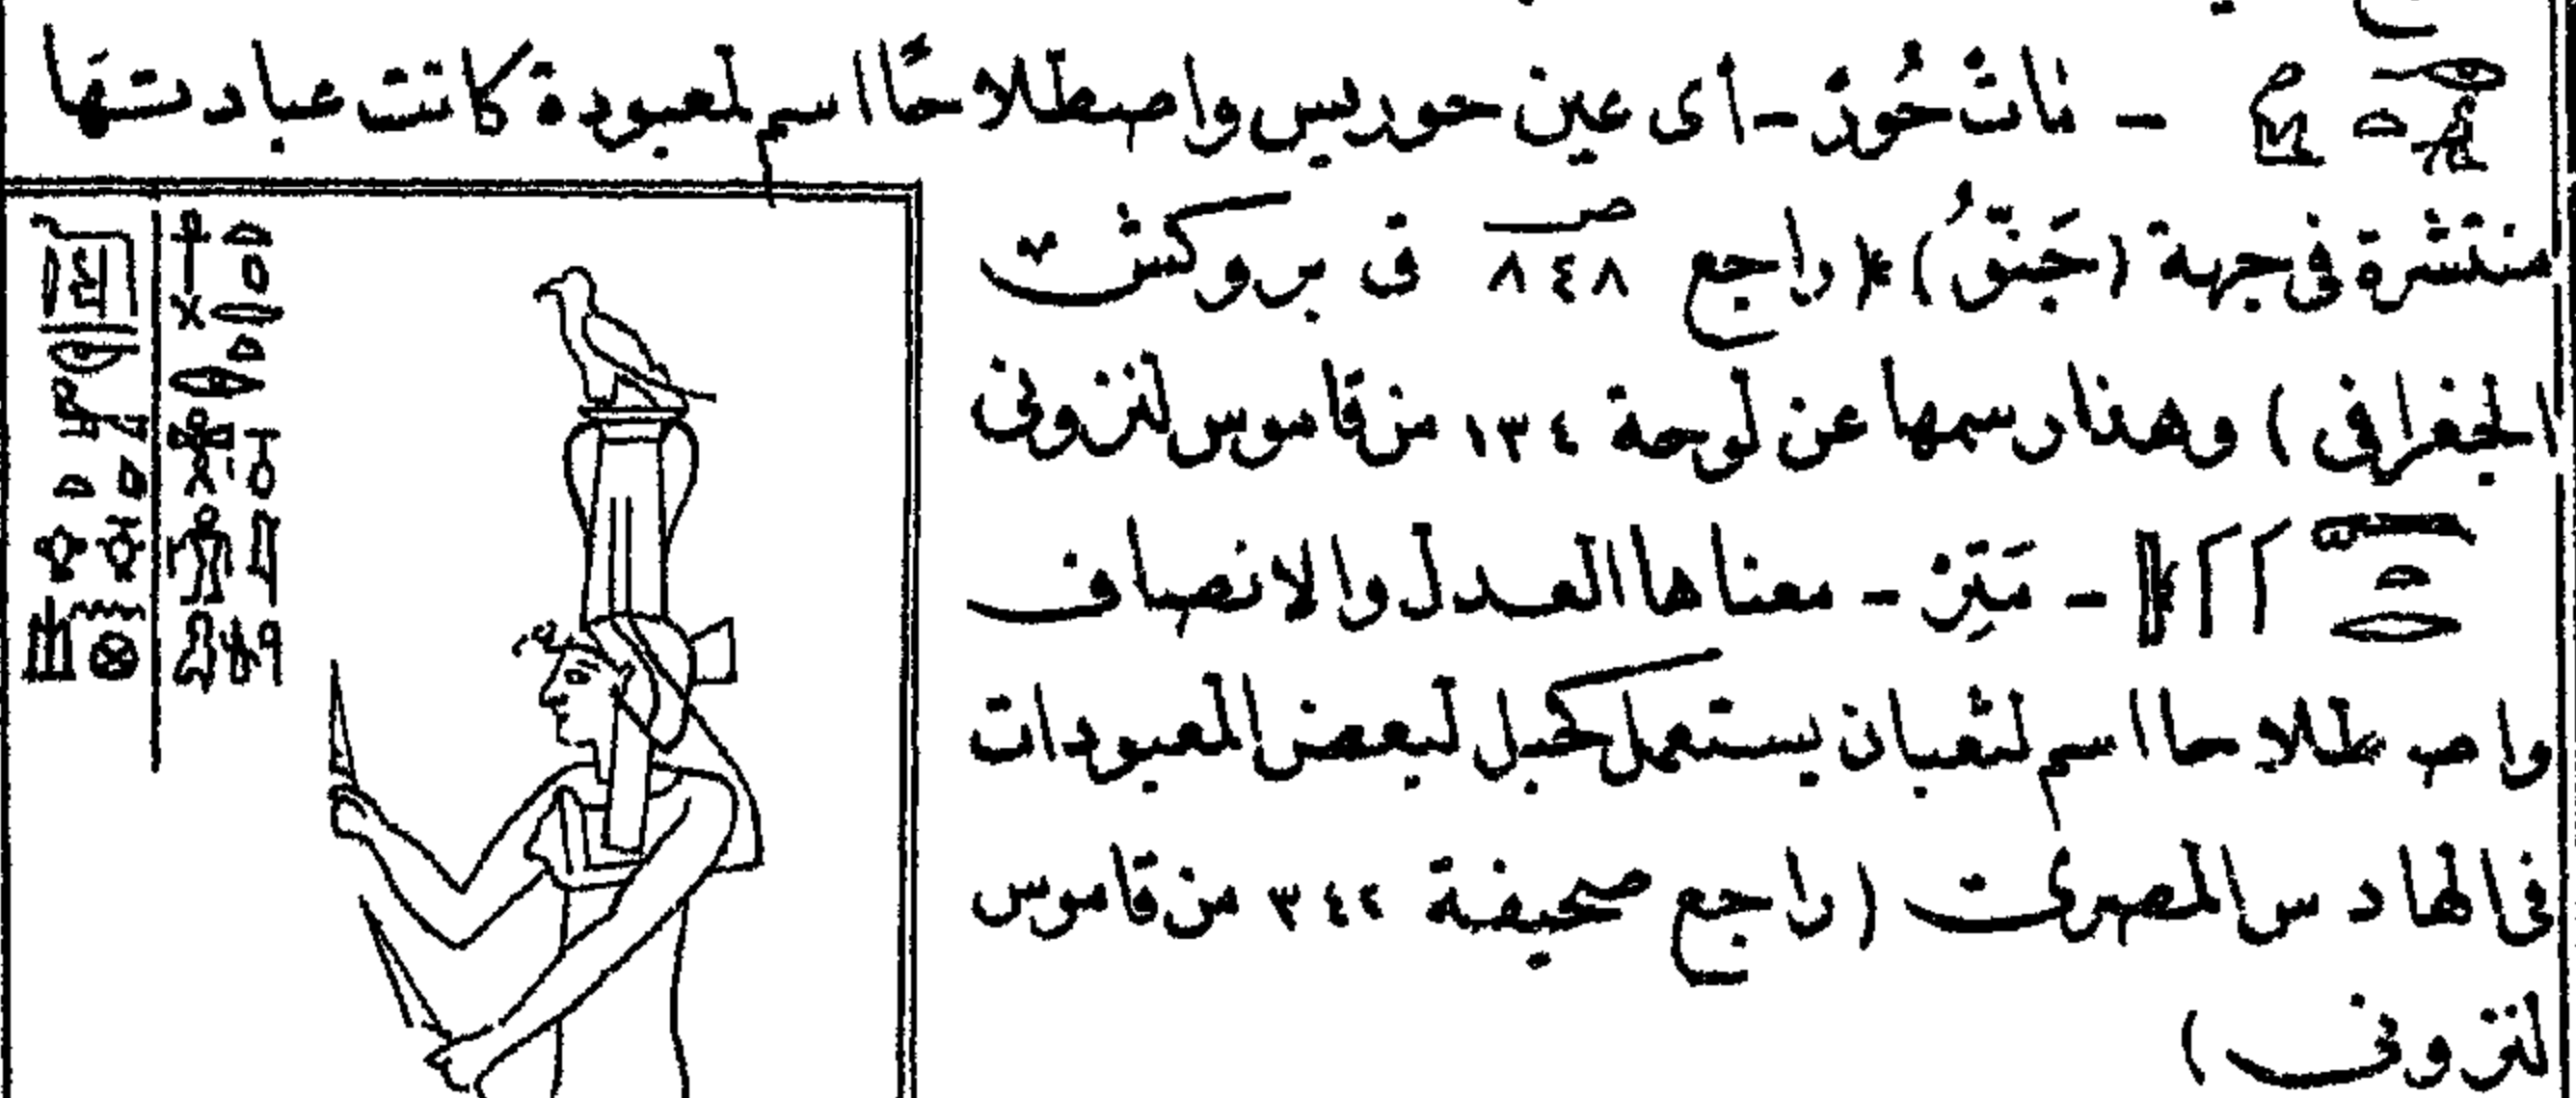 – مَاتْ حُورْ - أى عين حوريس واصطلاحًا اسم لمعبودة كانت عبادتها
منتشرة فى جهة (جَنَّقُ) (راجع ص ٨٤٨ ق بروكش
الجغرافى) وهذا رسمها عن لوحة ١٣٤ من قاموس لنزونى
- مَتِرْ - معناها العدل والانصاف
واصطلاحا اسم لثعبان يستعمل كحبل لبعض المعبودات
فى الهادس المصرى (راجع صحيفة ٣٤٤ من قاموس
لنزونى)